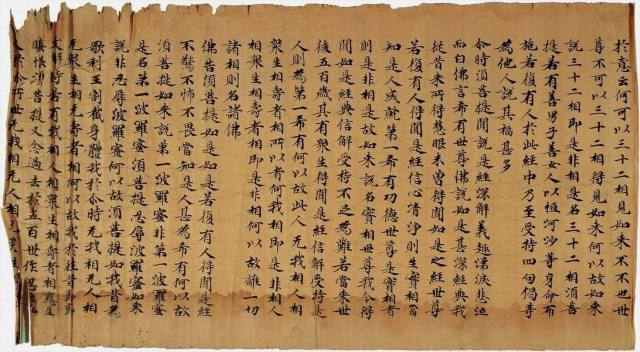 於意云何可以三十二相見如来不不也世
尊不可以三十二相得見如来何以故如来
說三十二相即是非相是名三十二相須菩
提若有善男子善女人以恒河沙等身命布
施若復有人於此經中乃至受持四句偈等
為他人說其福甚多
尒時須菩提聞說是經深解義趣涕淚悲泣
而白佛言希有世尊佛說是甚深經典我
從昔来所得慧眼未曾得聞如是之經世尊
若復有人得聞是經信心清淨則生實相當
知是人成就第一希有功德世尊是實相者
則是非相是故如来說名實相世尊我今得
聞如是經典信解受持不足為難若當来世
後五百歲其有眾生得聞是經信解受持是
人則為第一希有何以故此人无我相人相
眾生相壽者相所以者何我相即是非相人
相眾生相壽者相即是非相何以故離一切
諸相則名諸佛
佛告須菩提如是如是若復有人得聞是經
不驚不怖不畏當知是人甚為希有何以故
須菩提如来說第一波羅蜜非第一波羅蜜
是名第一波羅蜜須菩提忍辱波羅蜜如来
說非忍辱波羅蜜何以故須菩提如我昔為
歌利王割截身體我於尒時无我相无人相
无眾生相无壽者相何以故我於往昔節節
支解時若有我相人相眾生相壽者相應生
瞋恨須菩提又念過去於五百世作忍辱
人於尒所世无我相无人相无